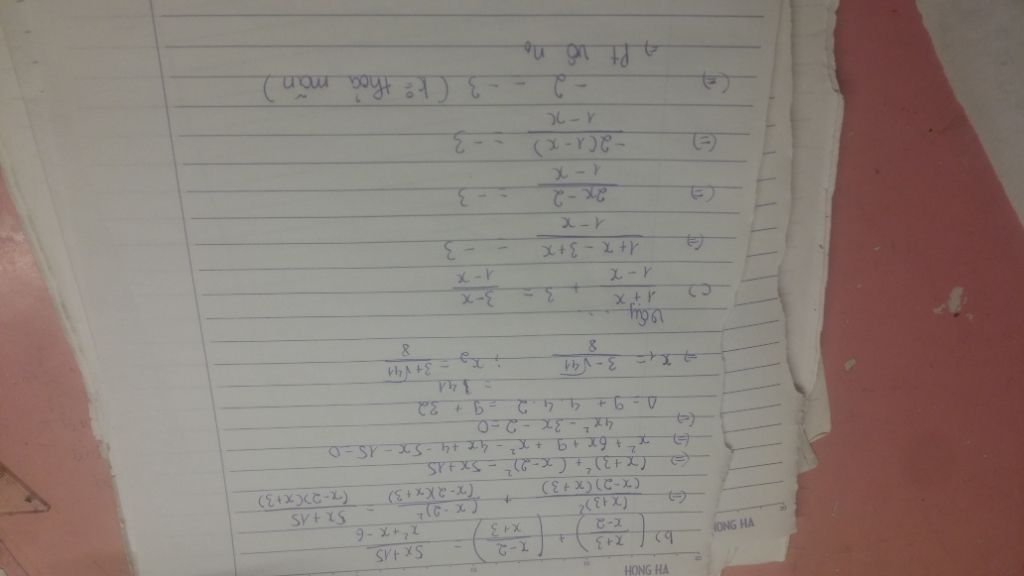 HONG HA
HONG HA
b) [(x+3)/(x-2)] + [(x-2)/(x+3)] = (5x+15)/(x²+x-6)
(=) (x+3)²/((x-2)(x+3)) + (x-2)²/((x-2)(x+3)) = (5x+15)/((x-2)(x+3))
(=) (x+3)² + (x-2)² = 5x+15
(=) x² + 6x + 9 + x² - 4x + 4 - 5x - 15 = 0
(=) 4x² - 3x - 2 = 0
Δ = 9 + 4.4.2 = 9 + 32
= 41
=) x₁ = (3-√41)/8 ; x₂ = (3+√41)/8
Vậy ...
c) (1+x)/(1-x) + 3 = (3-x)/(1-x)
(=) (1+x-3+x)/(1-x) = -3
(=) (2x-2)/(1-x) = -3
(=) -2(1-x)/(1-x) = -3
(=) -2 = -3 (k° thoả mãn)
=) Pt vô n°